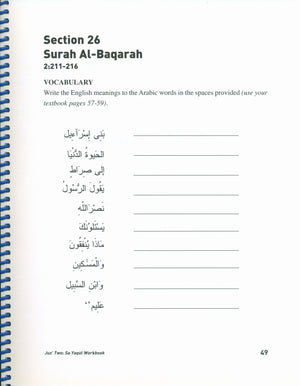 Section 26
Surah Al-Baqarah
2:211-216
VOCABULARY
Write the English meanings to the Arabic words in the spaces provided (use your
textbook pages 57-59).
بَنِى إِسْرَآءِيلَ
الحَيوةُ الدُّنْيَا
إِلى صِرَاطٍ
يَقُولَ الرَّسُولُ
نَصْرَ اللّٰهِ
يَسْئَلُونَكَ
مَاذَا يُنْفِقُونَ
وَالْمَسٰكِينِ
وَابْنِ السَّبِيلِ
عَلِيمٌ
Juz' Two: Sa Yaqūl Workbook
49